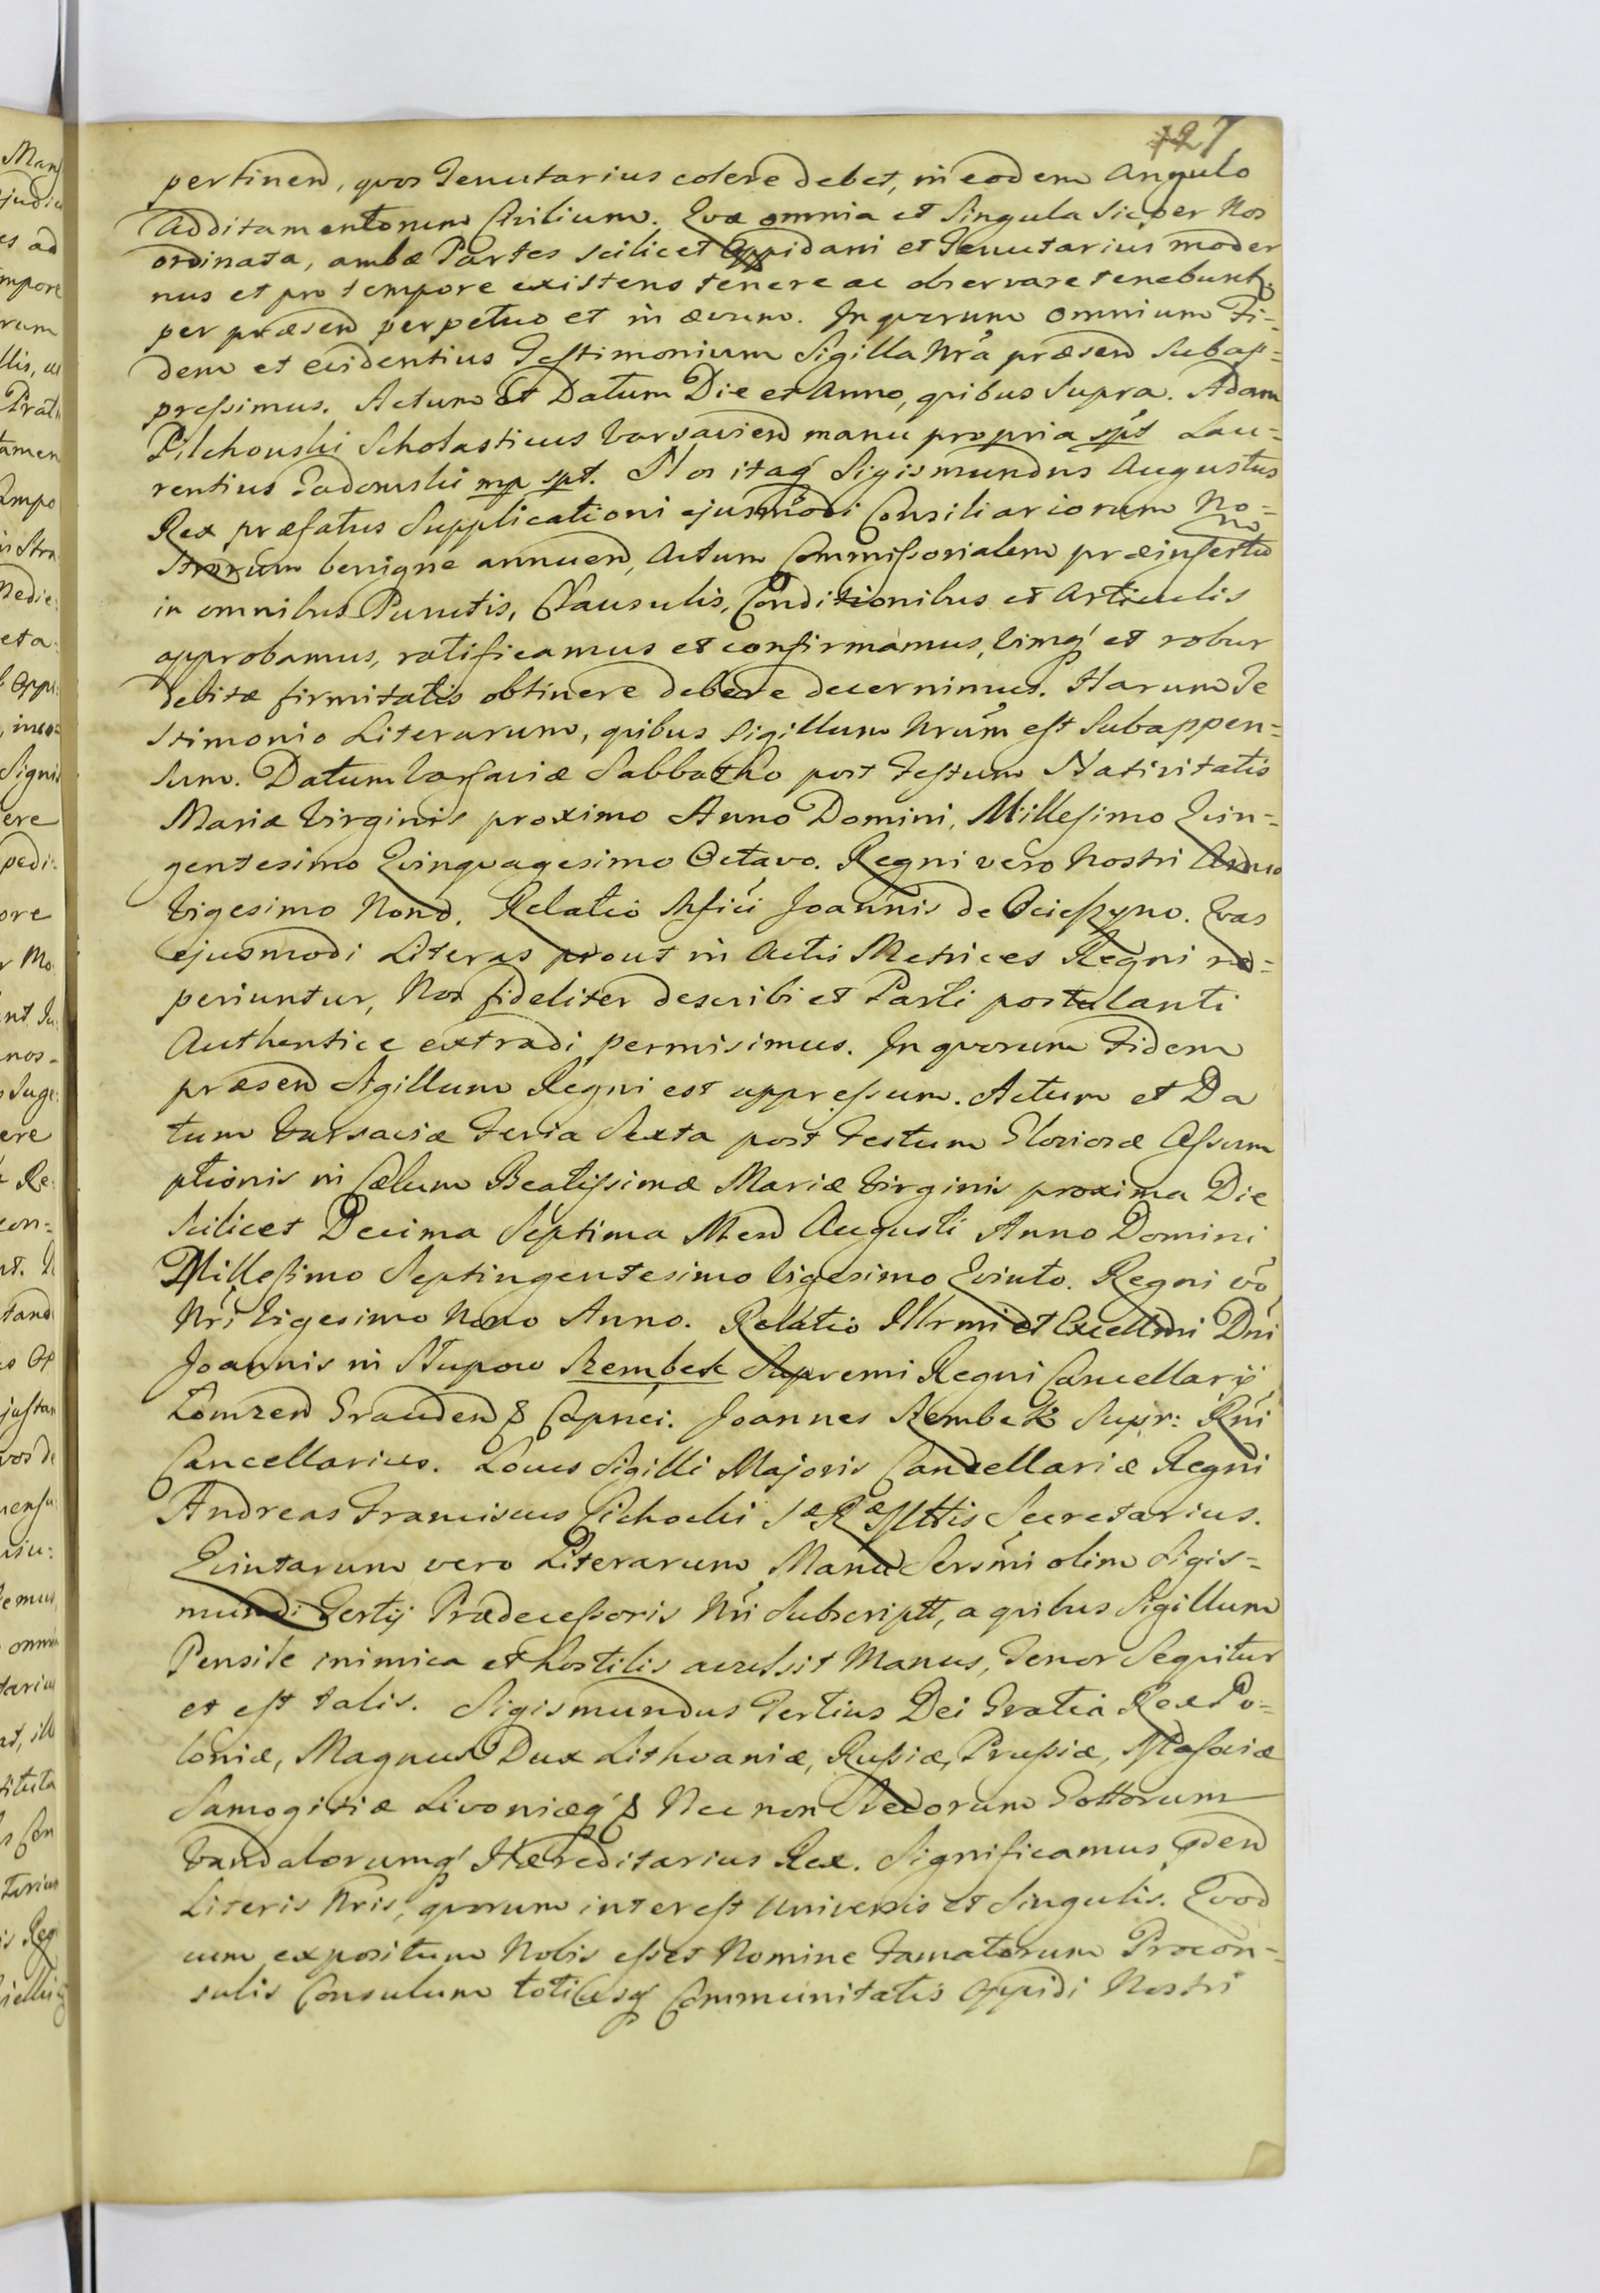 127
pertinen, quos Tenutarius colere debet, in eodem Angulo
Additamentorum Civilium. Quæ omnia et Singula sic per Nos
ordinata, ambæ Partes scilicet Oppidani et Tenutarius moder
nus et pro tempore existens tenere ac observare tenebuntr.
per præsen perpetuo et in ævum. In quorum omnium Fi=
dem et evidentius Testimonium Sigilla Nra præsen subap=
pressimus. Actum Et Datum Die et Anno, quibus Supra. Adam
Pilchouski Scholasticus Varsavien manu propria spt Lau=
rentius Gadomski mp spt. Nos itaq Sigismundus Augustus
Rex præfatus Supplicationi ejusmodi Consiliariorum No=
strorum benigne annuen, Actum Commissorialem præinsertu
in omnibus Punctis, Clausulis, Conditionibus et Articulis
approbamus, ratificamus et confirmamus, vimq et robur
debitæ firmitatis obtinere debere decernimus. Harum Te
stimonio Literarum, quibus Sigillum Nrum est Subappen=
sum. Datum Varsaviæ Sabbatho post Festum Nativitatis
Mariæ Virginis proximo Anno Domini, Millesimo Qvin=
gentesimo Qvinquagesimo Octavo. Regni vero Nostri Anno
Vigesimo Nono. Relatio Mfici Joannis de Ocieszyno. Qvas
ejusmodi Literas prout in Actis Metrices Regni re=
periuntur, Nos fideliter describi et Parti postulanti
Authentice extradi permisimus. In quorum Fidem
præsen Sigillum Regni est appressum. Actum et Da
tum Varsaviæ Feria Sexta post Festum Gloriosæ Assum
ptionis in Cælum Beatissimæ Mariæ Virginis proxima Die
scilicet Decima Septima Men Augusti Anno Domini
Millesimo Septingentesimo Vigesimo Qvinto. Regni vo
Nri Vigesimo Nono Anno. Relatio Illrmi et Excellmi Dni
Joannis in Słupow Szembek Supremi Regni Cancellarij
Łomzen Grauden & Capnei. Joannes Szembek Supr: Rni
Cancellarius. Locus Sigilli Majoris Cancellariæ Regni
Andreas Franciscus Cichocki Sæ Ræ Mttis Secretarius.
Qvintarum vero Literarum, Manu Sersmi olim Sigis=
mundi Tertij Prædecessoris Nri Subscriptt, a quibus Sigillum
Pensile inimica et hostilis avulsit Manus, Tenor Sequitur
et est talis. Sigismundus Tertius Dei Gratia Rex Po=
loniæ, Magnus Dux Lithvaniæ, Russiæ, Prussiæ, Masoviæ
Samogitiæ Livoniæq & Nec non Svecorum Gottorum
Vandalorumq Hæreditarius Rex. Significamus pden
Literis Nris, quorum interest Universis et Singulis. Qvod
cum expositum Nobis esset Nomine Famatorum Procon=
sulis Consulum totiusq Communitatis Oppidi Nostri